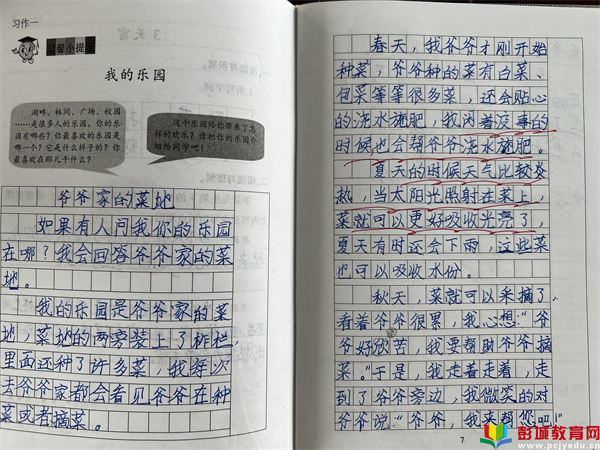 习作一
温馨小提
我的乐园
湖畔、林间、广场、校园
……是很多人的乐园。你的乐
园有哪些？你最喜欢的乐园是
哪一个？它是什么样子的？你
最喜欢在那儿干什么？
这个乐园给你带来了怎
样的欢乐？请把你的乐园介
绍给同学吧！
爷爷家的菜地
如果有人问我你的乐园
在哪？我会回答爷爷家的菜
地。
我的乐园是爷爷家的菜
地，菜地的两旁装上了栏，
里面还种了许多菜，我每次
去爷爷家都会看见爷爷在种
菜或者摘菜。
春天，我爷爷才刚开始
种菜，爷爷种的菜有白菜、
包菜等等很多菜，还会贴心
的浇水施肥，我闲着没事的
时候也会帮爷爷浇水施肥。
夏天的时候天气比较炎
热，当太阳光照射在菜上，
菜就可以更好吸收光亮了，
夏天有时还会下雨，这些菜
也可以吸收水份。
秋天，菜就可以采摘了，
看着爷爷很累，我心想：“爷
爷好欣苦，我要帮助爷爷摘
菜。”于是，我走着走着，走
到了爷爷旁边，我微笑的对
爷爷说：“爷爷，我来帮您吧！”
7
彭城教育网
www.pcjyedu.cn